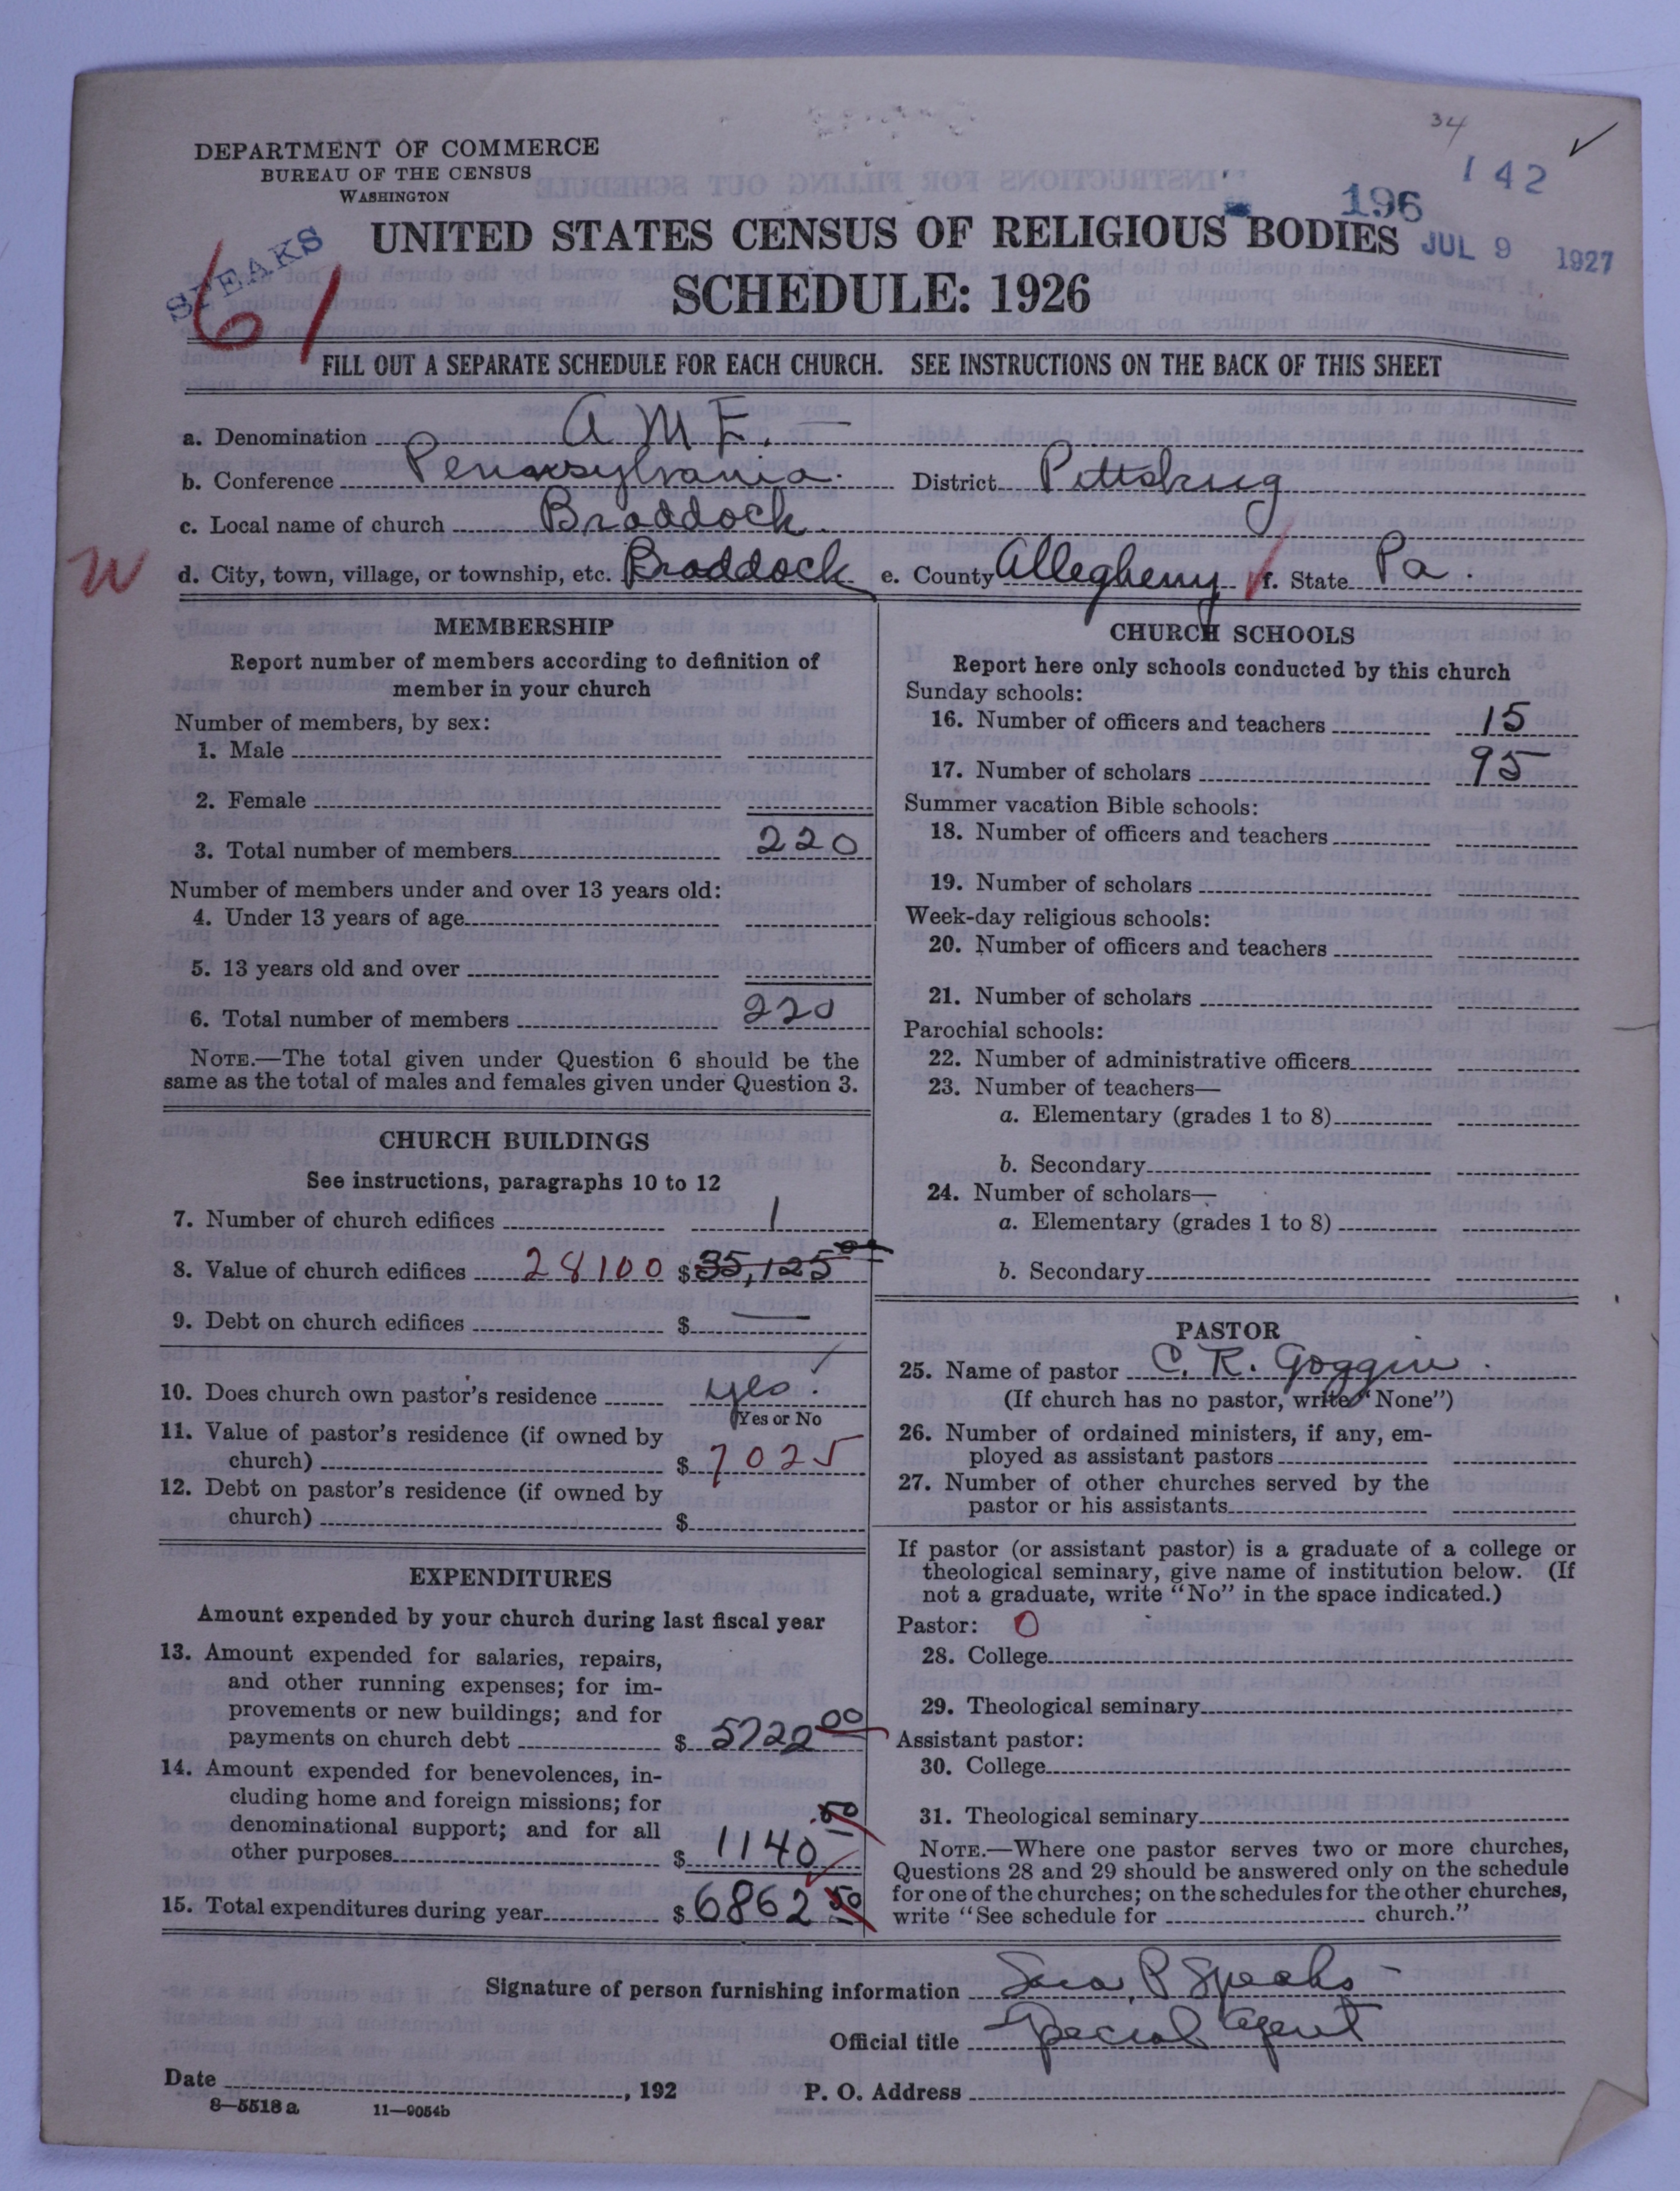 34
142
196
JUL 9 1927
DEPARTMENT OF COMMERCE
BUREAU OF THE CENSUS
WASHINGTON
SPEAKS
61
UNITED STATES CENSUS OF RELIGIOUS BODIES
SCHEDULE: 1926
FILL OUT A SEPARATE SCHEDULE FOR EACH CHURCH. SEE INSTRUCTIONS ON THE BACK OF THIS SHEET
a. Denomination A.M.E.
b. Conference Pennsylvania. District Pittsburg
c. Local name of church Braddock.
W
d. City, town, village, or township, etc. Braddock e. County Allegheny f. State Pa.
MEMBERSHIP
Report number of members according to definition of
member in your church
Number of members, by sex:
1. Male
2. Female
3. Total number of members 220
Number of members under and over 13 years old:
4. Under 13 years of age
5. 13 years old and over
6. Total number of members 220
NOTE.—The total given under Question 6 should be the
same as the total of males and females given under Question 3.
CHURCH BUILDINGS
See instructions, paragraphs 10 to 12
7. Number of church edifices 1
8. Value of church edifices 28100 $35,125 00
9. Debt on church edifices $
10. Does church own pastor's residence yes.
Yes or No
11. Value of pastor's residence (if owned by
church) $ 7025
12. Debt on pastor's residence (if owned by
church) $
EXPENDITURES
Amount expended by your church during last fiscal year
13. Amount expended for salaries, repairs,
and other running expenses; for im-
provements or new buildings; and for
payments on church debt $ 5722 00
14. Amount expended for benevolences, in-
cluding home and foreign missions; for
denominational support; and for all
other purposes $ 1140.50
15. Total expenditures during year $ 6862 50
CHURCH SCHOOLS
Report here only schools conducted by this church
Sunday schools:
16. Number of officers and teachers 15
17. Number of scholars 95
Summer vacation Bible schools:
18. Number of officers and teachers
19. Number of scholars
Week-day religious schools:
20. Number of officers and teachers
21. Number of scholars
Parochial schools:
22. Number of administrative officers
23. Number of teachers—
a. Elementary (grades 1 to 8)
b. Secondary
24. Number of scholars—
a. Elementary (grades 1 to 8)
b. Secondary
PASTOR
25. Name of pastor C. R. Goggin.
(If church has no pastor, write "None")
26. Number of ordained ministers, if any, em-
ployed as assistant pastors
27. Number of other churches served by the
pastor or his assistants
If pastor (or assistant pastor) is a graduate of a college or
theological seminary, give name of institution below. (If
not a graduate, write "No" in the space indicated.)
Pastor: 0
28. College
29. Theological seminary
Assistant pastor:
30. College
31. Theological seminary
NOTE.—Where one pastor serves two or more churches,
Questions 28 and 29 should be answered only on the schedule
for one of the churches; on the schedules for the other churches,
write "See schedule for church."
Signature of person furnishing information Sara P Speaks
Official title Special Agent
Date , 192 P. O. Address
8—5518 a 11—9054b